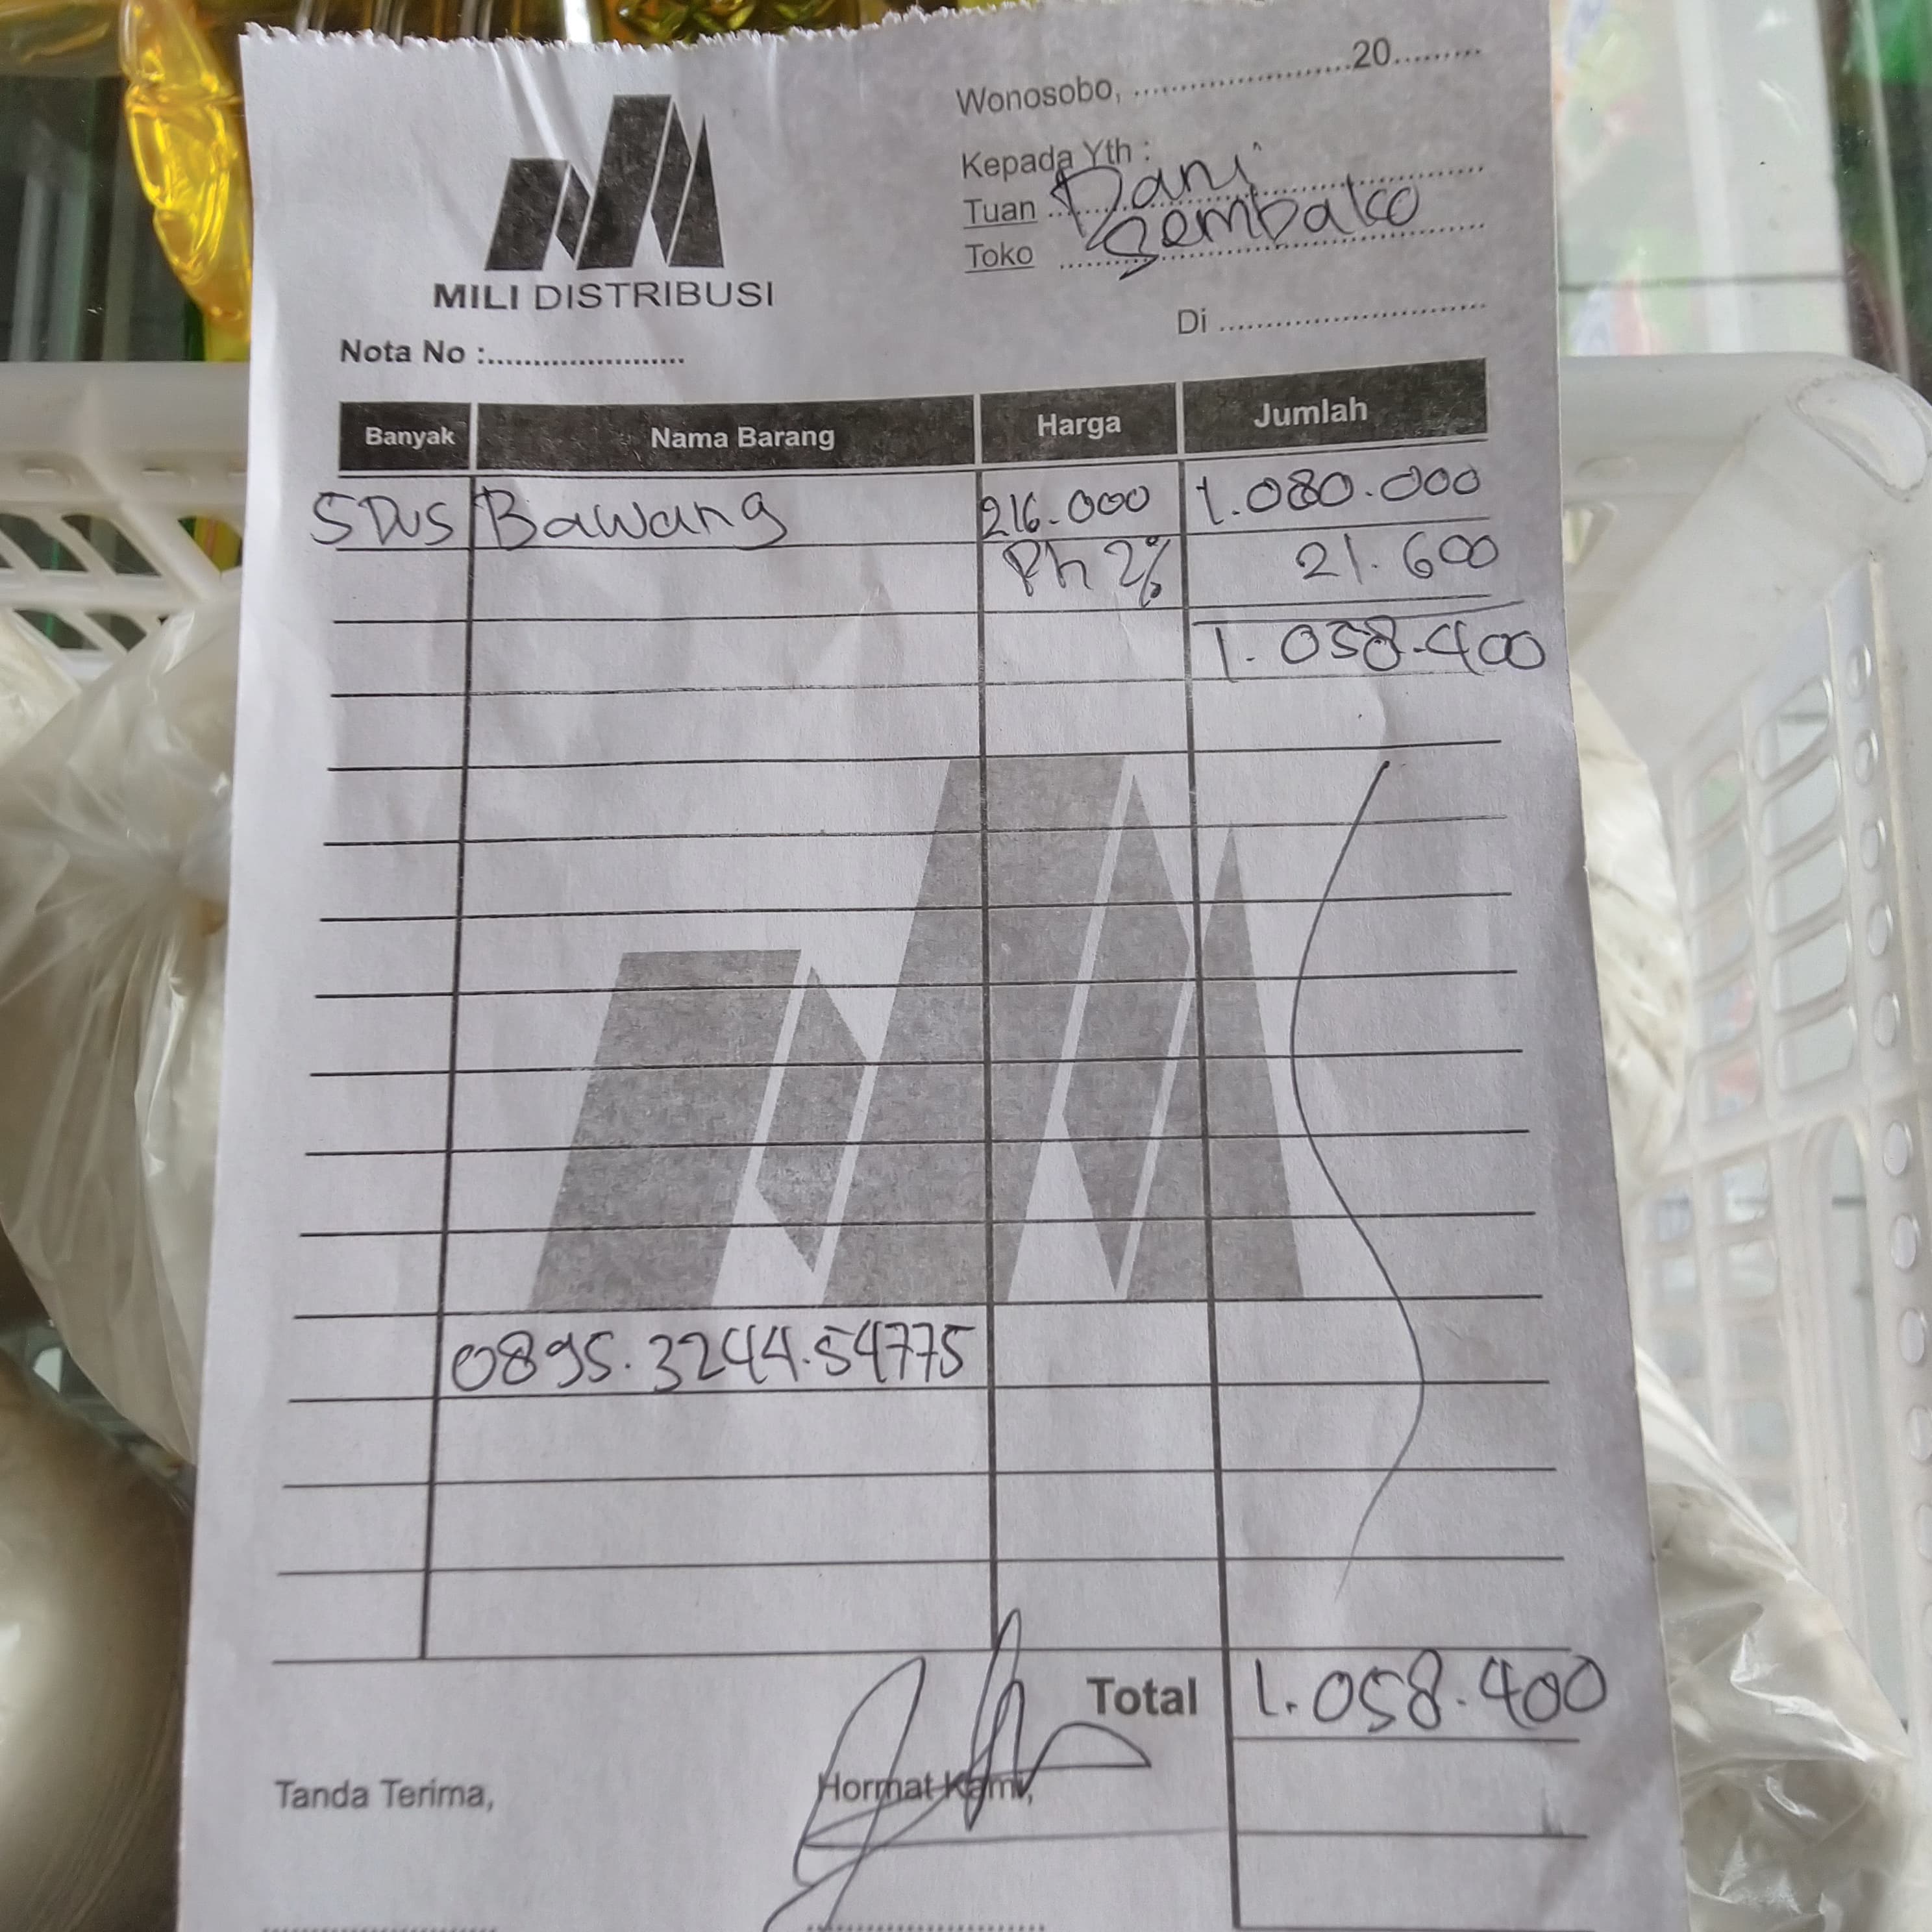 Wonosobo, ........................20.........
Kepada Yth :
Tuan Dani
Toko Sembako
MILI DISTRIBUSI
Di ..............................
Nota No :......................
Banyak Nama Barang Harga Jumlah
5 Dus Bawang 216.000 1.080.000
Ph 2% 21.600
1.058.400
0895.3244.54775
Total 1.058.400
Tanda Terima, Hormat Kami,